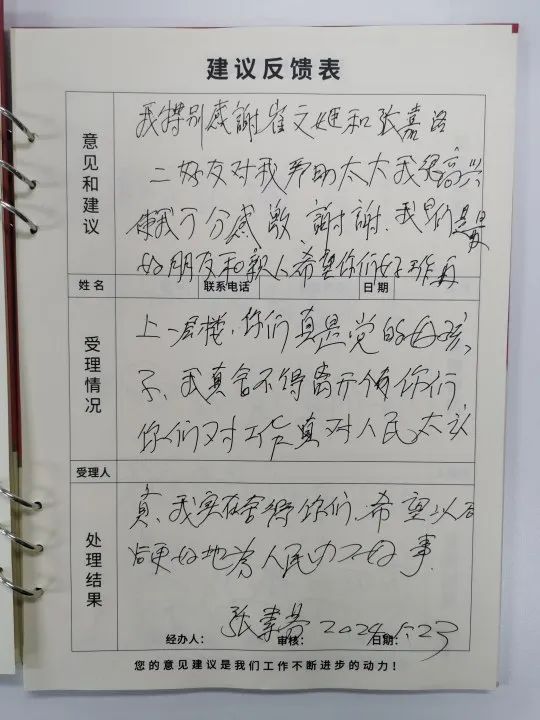 建议反馈表
意见和建议
我特别感謝崔文姬和张嘉洛
二好友对我帮助太大我很高兴
使我万分感激、謝謝、我们是最
好朋友和親人希望你们好工作再
姓名
联系电话
日期
受理情况
上一层楼，你们真是党的好孩
子、我真舍不得离开你们，
你们对工作真对人民太认
受理人
处理结果
真、我实在舍得你们、希望以后
更好地为人民办好事.
张素 2024 5.23
经办人：
审核：
日期：
您的意见建议是我们工作不断进步的动力！